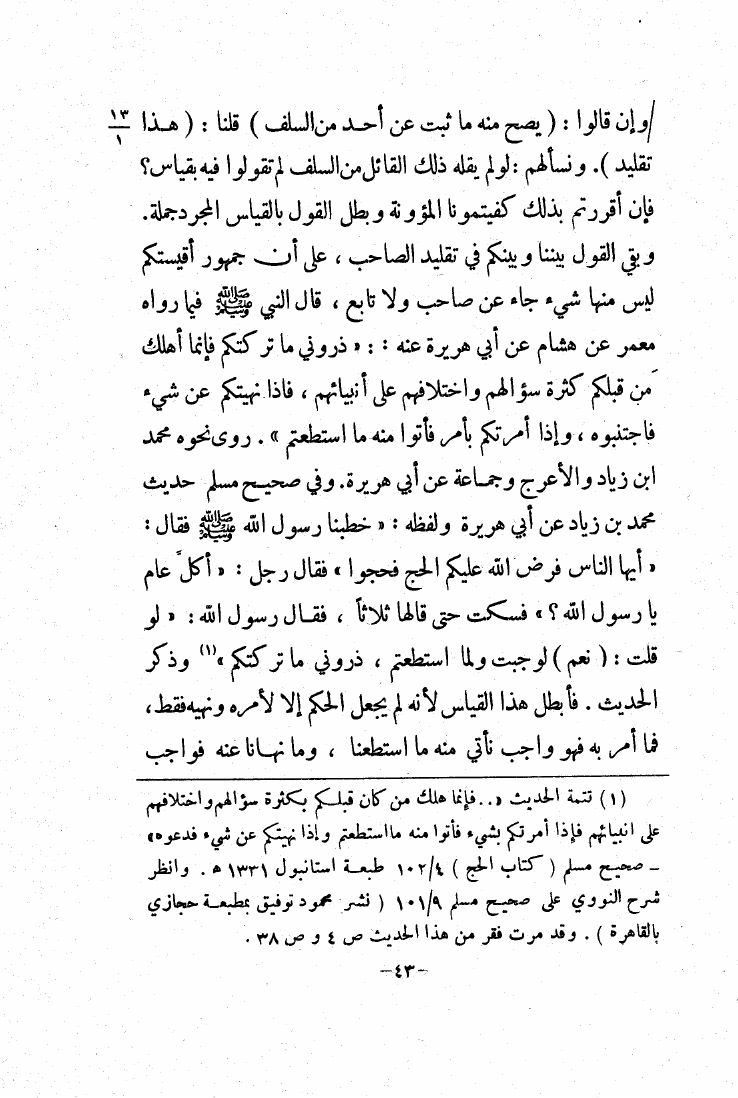 /وإن قالوا : ( يصح منه ما ثبت عن أحد من السلف ) قلنا : ( هذا ١٣/١
تقليد ) . ونسألهم : لو لم يقله ذلك القائل من السلف لم تقولوا فيه بقياس؟
فإن أقررتم بذلك كفيتمونا المؤونة وبطل القول بالقياس المجرد جملة .
وبقي القول بيننا وبينكم في تقليد الصاحب ، على أن جمهور أقيستكم
ليس منها شيء جاء عن صاحب ولا تابع ، قال النبي ﷺ فيما رواه
معمر عن هشام عن أبي هريرة عنه : : « ذروني ما تركتكم فإنما أهلك
من قبلكم كثرة سؤالهم واختلافهم على أنبيائهم ، فاذا نهيتكم عن شيء
فاجتنبوه ، وإذا أمرتكم بأمر فأتوا منه ما استطعتم » . روى نحوه محمد
ابن زياد والأعرج وجماعة عن أبي هريرة . وفي صحيح مسلم حديث
محمد بن زياد عن أبي هريرة ولفظه : « خطبنا رسول الله ﷺ فقال :
« أيها الناس فرض الله عليكم الحج فحجوا » فقال رجل : « أكلّ عام
يا رسول الله ؟ » فسكت حتى قالها ثلاثاً ، فقال رسول الله : « لو
قلت : ( نعم ) لوجبت ولما استطعتم ، ذروني ما تركتكم »(١) وذكر
الحديث . فأبطل هذا القياس لأنه لم يجعل الحكم إلا لأمره ونهيه فقط ،
فما أمر به فهو واجب نأتي منه ما استطعنا ، وما نهانا عنه فواجب
(١) تتمة الحديث « .. فإنما هلك من كان قبلكم بكثرة سؤالهم واختلافهم
على انبيائهم فإذا أمرتكم بشيء فأتوا منه ما استطعتم وإذا نهيتكم عن شيء فدعوه »
– صحيح مسلم ( كتاب الحج ) ١٠٢/٤ طبعة استانبول ١٣٣١ ه . وانظر
شرح النووي على صحيح مسلم ١٠١/٩ ( نشر محمود توفيق بمطبعة حجازي
بالقاهرة ) . وقد مرت فقر من هذا الحديث ص ٤ و ص ٣٨ .
–٤٣–